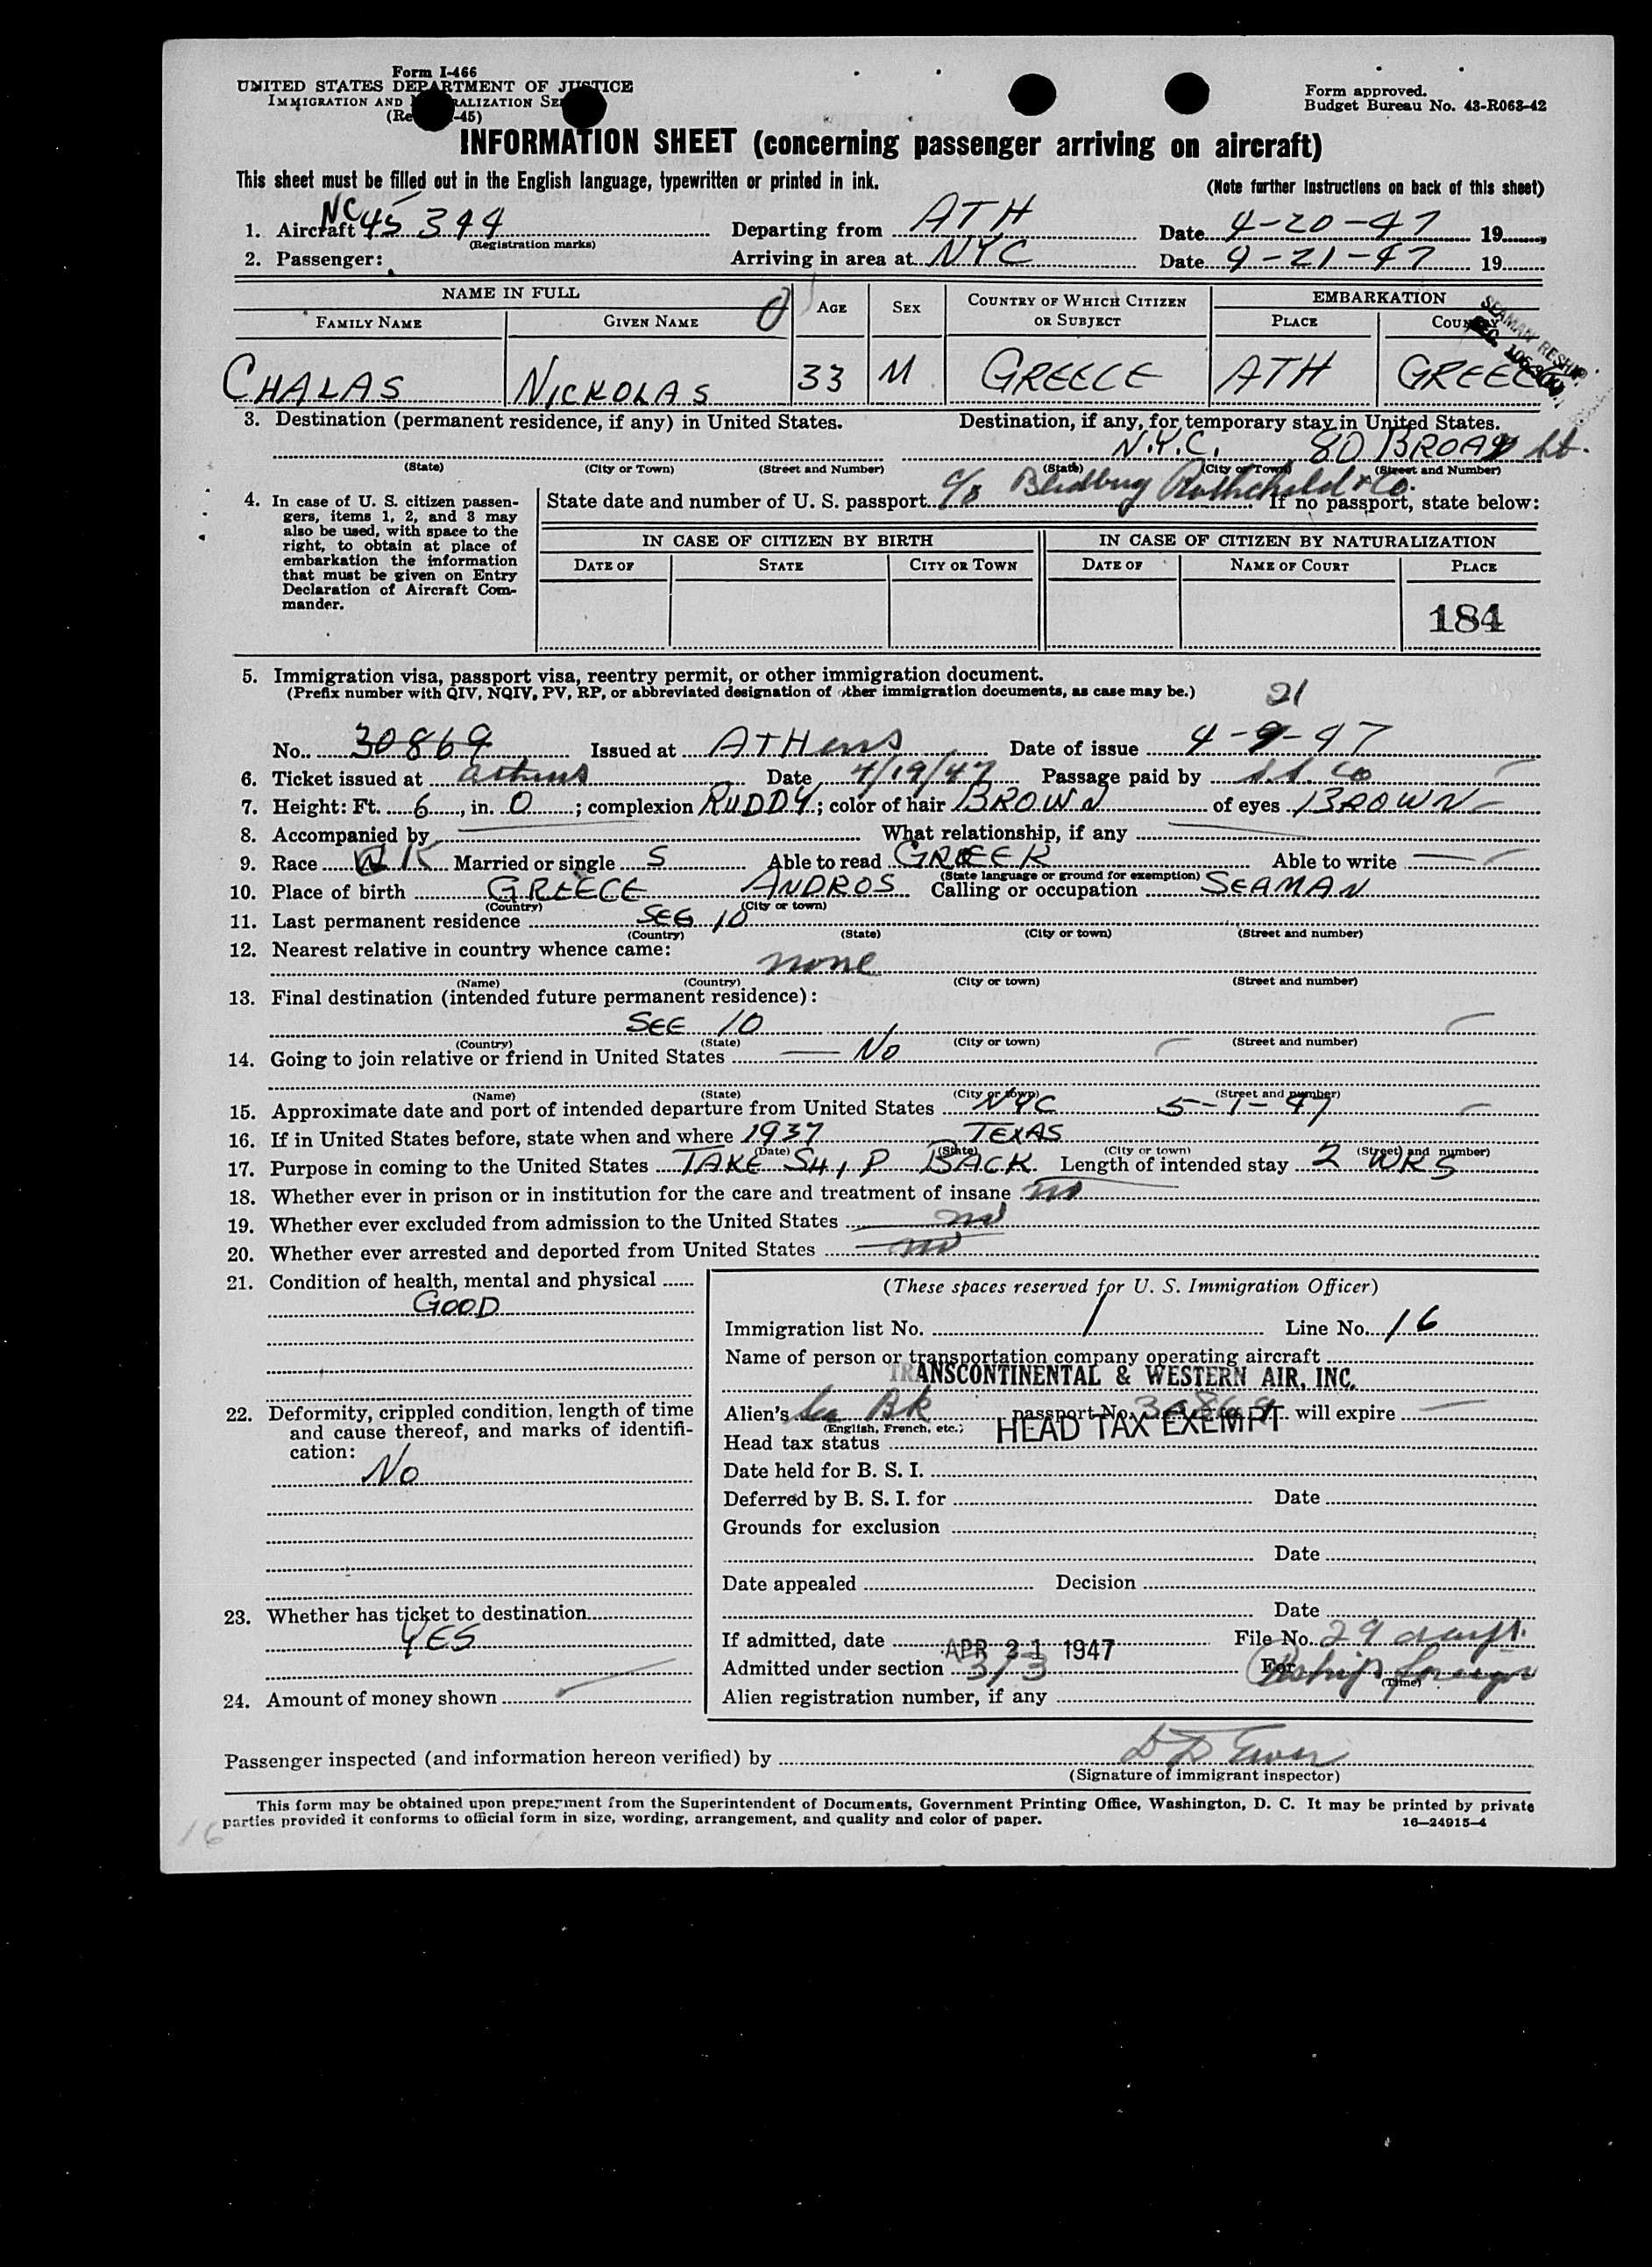 Form I-466
UNITED STATES DEPARTMENT OF JUSTICE
IMMIGRATION AND NATURALIZATION SERVICE
-45)
Form approved.
Budget Bureau No. 43-R063-42
INFORMATION SHEET (concerning passenger arriving on aircraft)
This sheet must be filled out in the English language, typewritten or printed in ink.
(Note further instructions on back of this sheet)
1. Aircraft NC 45344 Departing from ATH Date 4-20-47 19
(Registration marks)
2. Passenger: Arriving in area at NYC Date 4-21-47 19
NAME IN FULL AGE SEX COUNTRY OF WHICH CITIZEN OR SUBJECT EMBARKATION
FAMILY NAME GIVEN NAME PLACE COUNTRY
SEAMAN RESHIP.
CHALAS NICKOLAS 33 M GREECE ATH GREECE
3. Destination (permanent residence, if any) in United States. Destination, if any, for temporary stay in United States.
N.Y.C. 80 BROAD St.
(State) (City or Town) (Street and Number) (State) (City or Town) (Street and Number)
4. In case of U. S. citizen passengers, items 1, 2, and 3 may also be used, with space to the right, to obtain at place of embarkation the information that must be given on Entry Declaration of Aircraft Commander.
State date and number of U. S. passport c/o Rothchild & Co. If no passport, state below:
IN CASE OF CITIZEN BY BIRTH IN CASE OF CITIZEN BY NATURALIZATION
DATE OF STATE CITY OR TOWN DATE OF NAME OF COURT PLACE
184
5. Immigration visa, passport visa, reentry permit, or other immigration document.
(Prefix number with QIV, NQIV, PV, RP, or abbreviated designation of other immigration documents, as case may be.)
21
No. 30869 Issued at ATHens Date of issue 4-9-47
6. Ticket issued at athens Date 4/19/47 Passage paid by s.s. co
7. Height: Ft. 6, in. 0; complexion RUDDY; color of hair BROWN of eyes BROWN
8. Accompanied by What relationship, if any
9. Race Married or single S Able to read GREEK Able to write
(State language or ground for exemption)
10. Place of birth GREECE ANDROS Calling or occupation SEAMAN
(Country) (City or town)
11. Last permanent residence SEE 10
(Country) (State) (City or town) (Street and number)
12. Nearest relative in country whence came:
none
(Name) (Country) (City or town) (Street and number)
13. Final destination (intended future permanent residence):
SEE 10
(Country) (State) (City or town) (Street and number)
14. Going to join relative or friend in United States No
(Name) (State) (City or town) (Street and number)
15. Approximate date and port of intended departure from United States NYC 5-1-47
16. If in United States before, state when and where 1937 TEXAS
(Date) (State) (City or town) (Street and number)
17. Purpose in coming to the United States TAKE SHIP BACK Length of intended stay 2 WKS
18. Whether ever in prison or in institution for the care and treatment of insane no
19. Whether ever excluded from admission to the United States no
20. Whether ever arrested and deported from United States no
21. Condition of health, mental and physical
GOOD
22. Deformity, crippled condition, length of time and cause thereof, and marks of identification:
No
23. Whether has ticket to destination
YES
24. Amount of money shown
(These spaces reserved for U. S. Immigration Officer)
Immigration list No. 1 Line No. 16
Name of person or transportation company operating aircraft
TRANSCONTINENTAL & WESTERN AIR, INC.
Alien's Sea BK passport No. 30869 will expire
(English, French, etc.)
HEAD TAX EXEMPT
Head tax status
Date held for B. S. I.
Deferred by B. S. I. for Date
Grounds for exclusion
Date
Date appealed Decision
Date
If admitted, date APR 21 1947 File No. 29 days
Admitted under section 3/3 For Reship foreign
(Time)
Alien registration number, if any
Passenger inspected (and information hereon verified) by
(Signature of immigrant inspector)
This form may be obtained upon prepayment from the Superintendent of Documents, Government Printing Office, Washington, D. C. It may be printed by private
parties provided it conforms to official form in size, wording, arrangement, and quality and color of paper.
16—24915-4
16